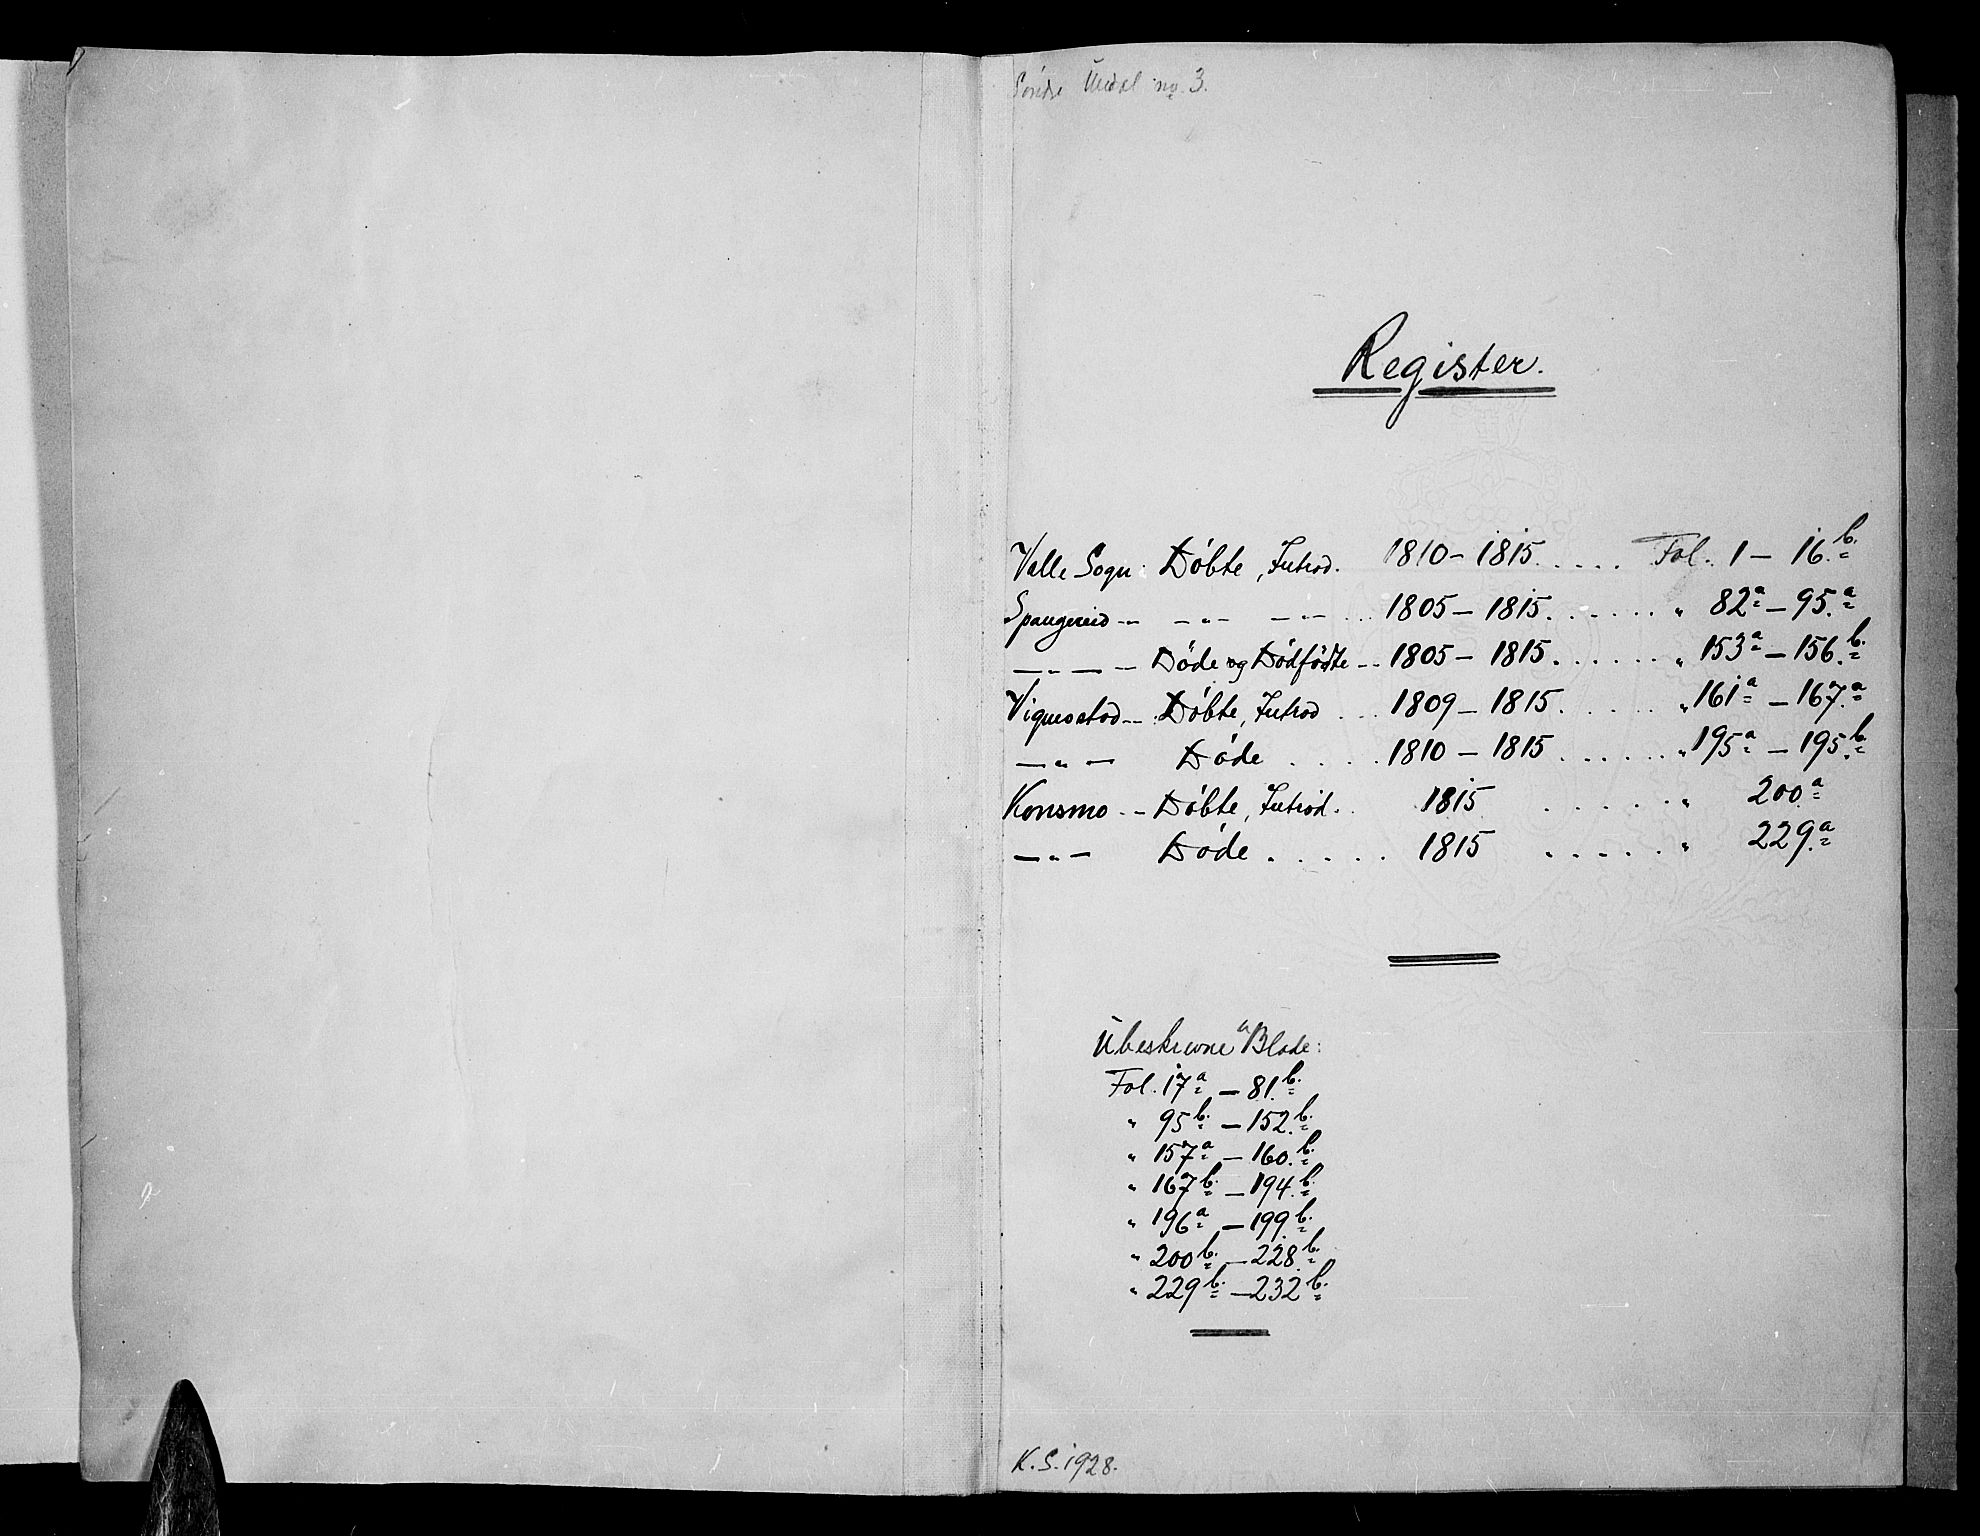 Søndre Undal no. 3.
Register.
Valle Sogn. Döbte, Introd. 1810 - 1815. . . . . Fol. 1 - 16.b.
Spangereid -- - „ - - „ - . . . 1805 - 1815. . . . . . „ 82a - 95.a
- „ - - Döde og Dödfödte - - 1805 - 1815. . . . . . „ 153a - 156.b.
Vigmostad -- Döbte, Introd . . . 1809 - 1815. . . . . . „ 161a - 167.a
- „ - Döde . . . . . 1810 - 1815 . . . . . . „ 195a - 195.b.
Konsmo - - Döbte, Introd. . 1815 . . . . . . „ 200.a
- „ - Döde . . . . . 1815 . . . . . „ 229.a
Ubeskrevne Blade:
Fol. 17a - 81.b.
„ 95b. - 152.b.
„ 157a - 160.b.
„ 167b. - 194.b.
„ 196a - 199.b.
„ 200b. - 228.b.
„ 229b. - 232b.
K. S. 1928.